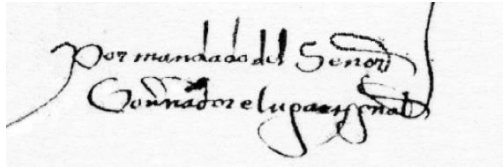 Por mandado del Señor
Gouernador e lugartenjente